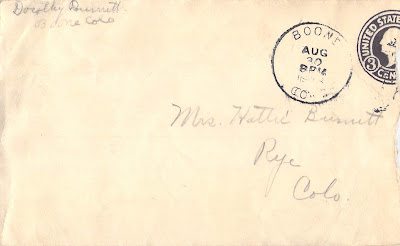 Dorothy Burnett.
Boone Colo
BOONE
AUG
30
8PM
COLO.
UNITED STATES
3 CEN
Mrs. Hattie Burnett
Rye
Colo.